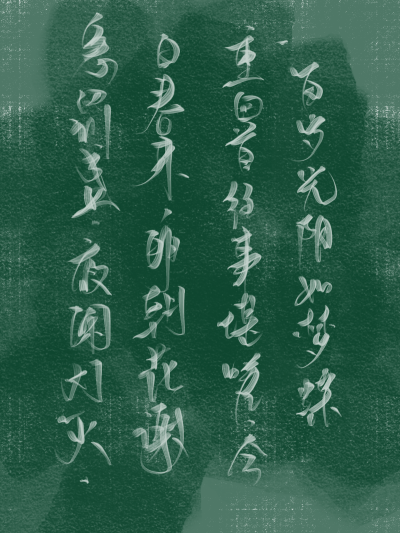 百岁光阴如梦蝶
重回首往事堪嗟今
日春来明朝花谢
急罚盏夜阑灯灭